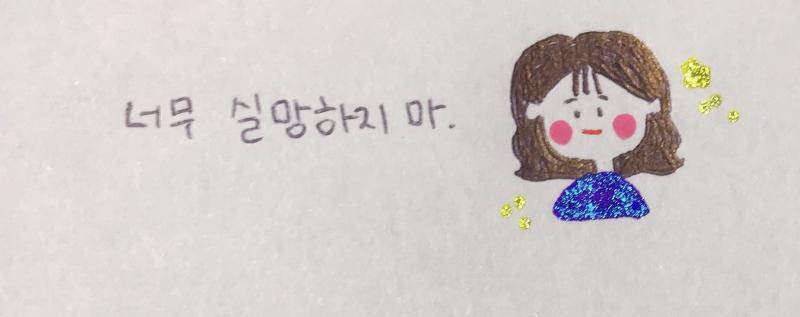 너무 실망하지 마.